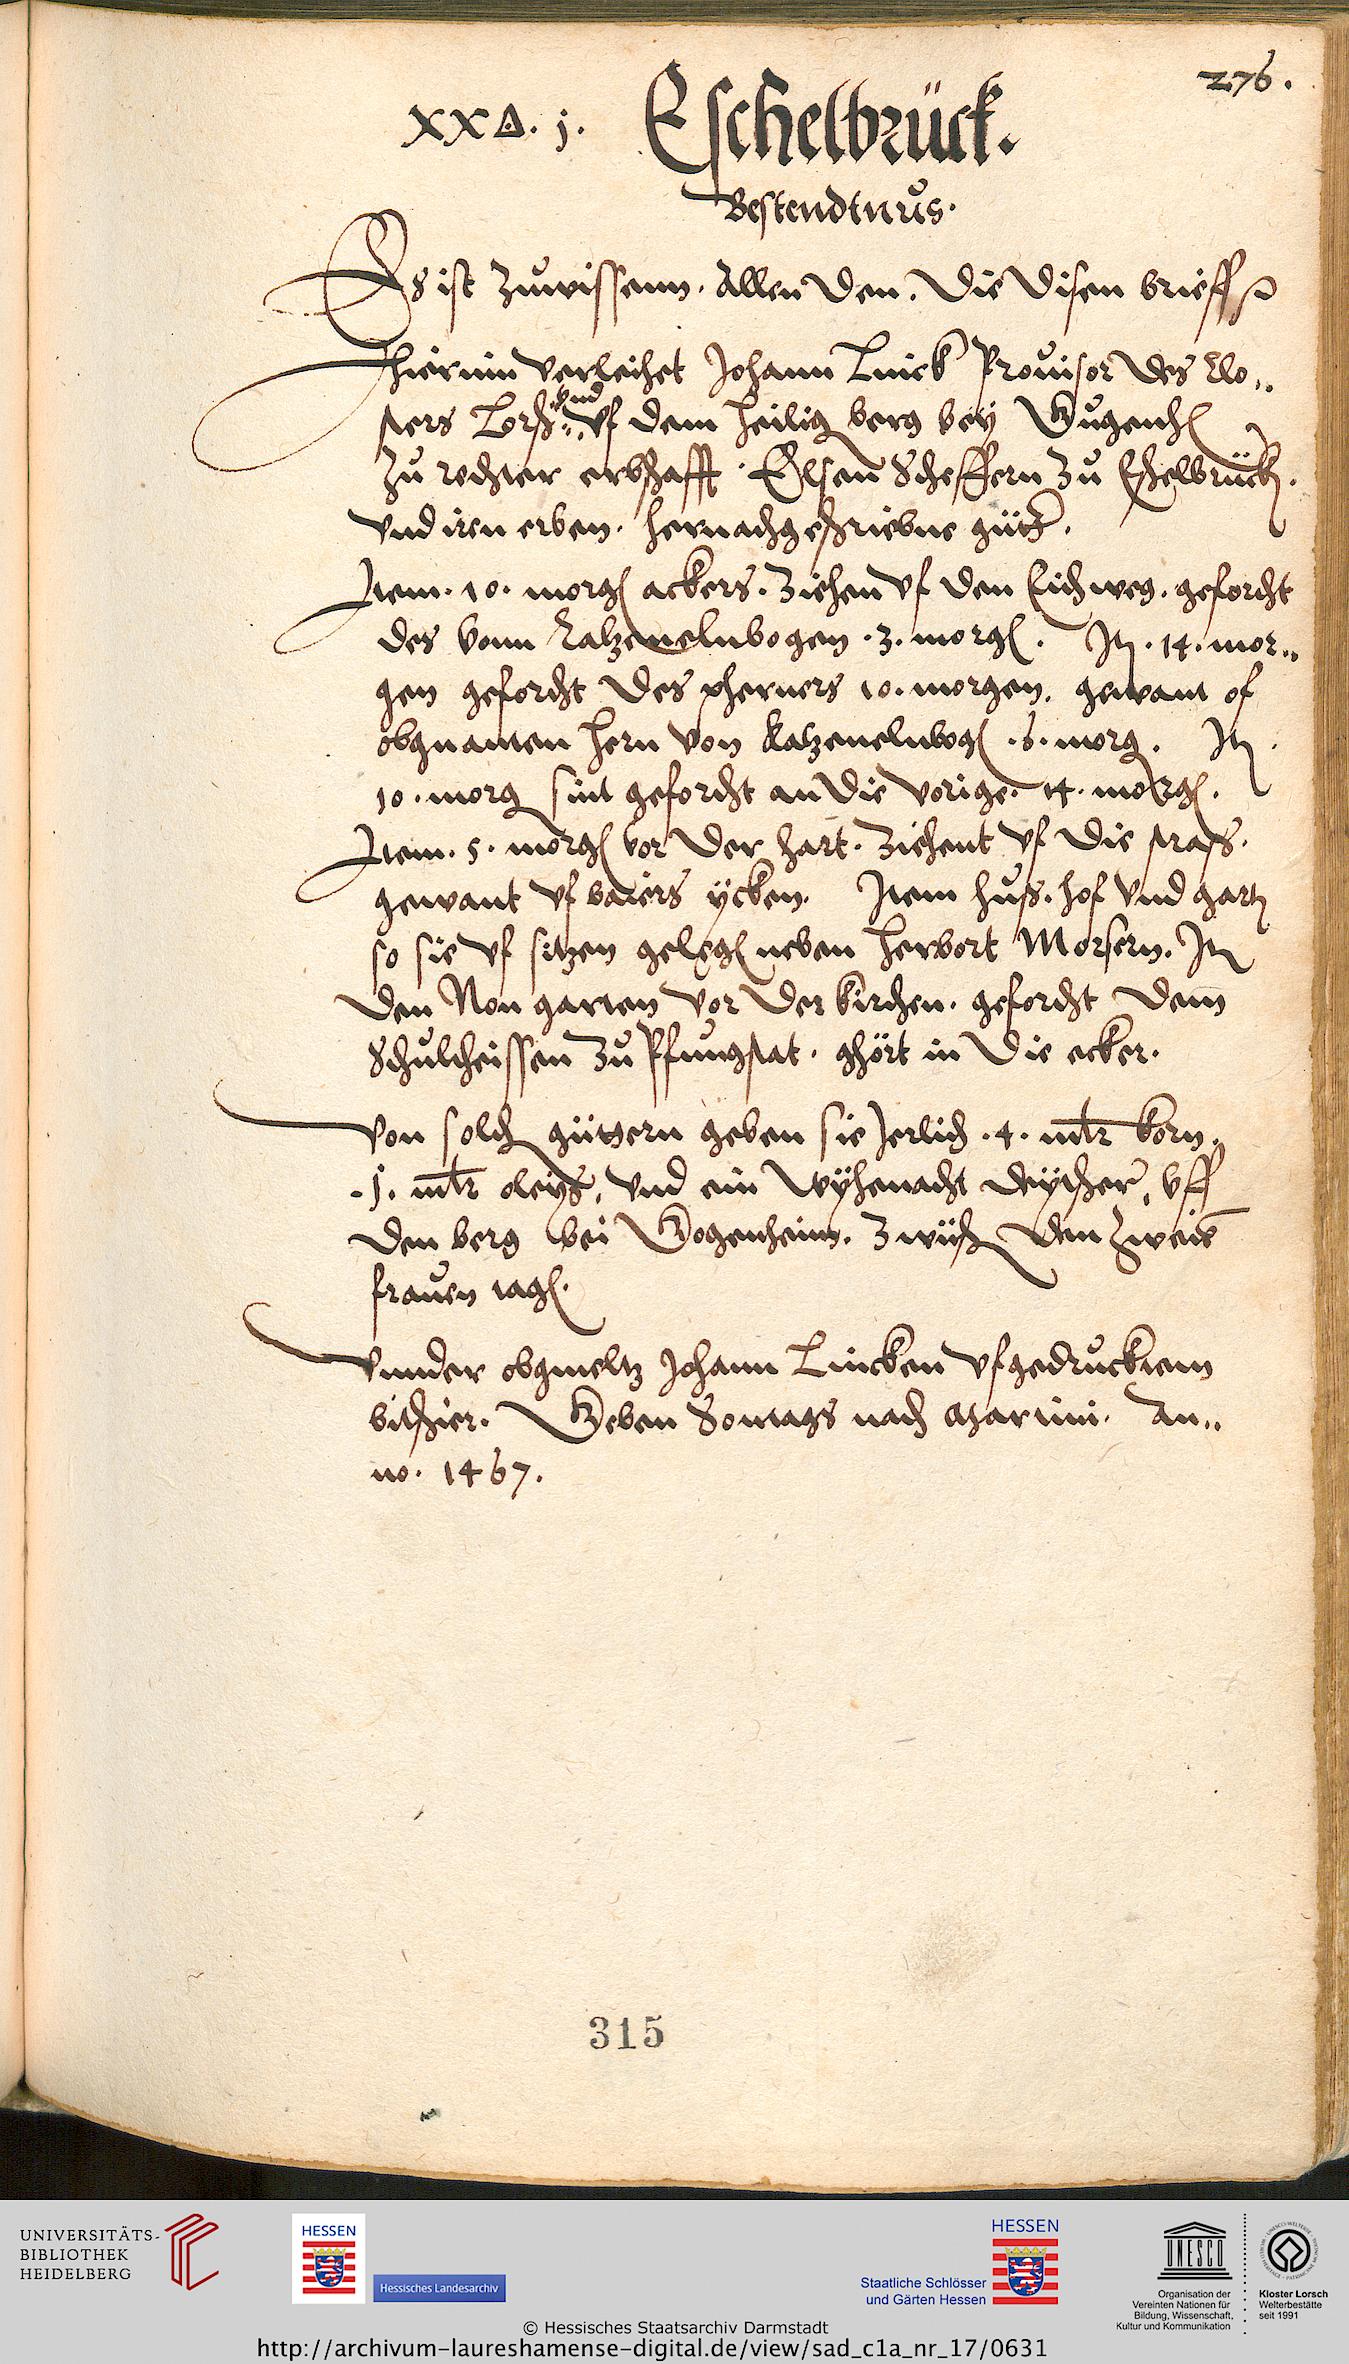 276.
XXΔ. j. Eschelbrück.
Bestendtnus.
Es ist zuwissenn. Allen den. die disen brieff
hierinn verleihet Johann Linck Provisor des Clo„
vnd
sters Lorß„ vf dem heilig berg bey Gugenh
zu rechter erbschafft. Elsen Scheffern zu Eschelbrück.
vnd iren erben. hernachgeschriebne gütt.
Item. 10. morg ackers. ziehen vf den Eichweg. geforcht
des vonn Katzenelnbogen .3. morg. It. 14. mor„
gen geforcht des pherners 10. morgen. gewant of
obgnanten hern von Katzenelnbog .6. morg. It.
10. morg sint geforcht an die vorige. 14. morg.
Item. 5. morg vor der hart. ziehent vf die straß.
gewant vf baiers ÿcken. Item huß. hof vnd gart
so sie vf sitzen geleg neben herbort Morsern. It
den Non garten vor der kirchen. geforcht dem
Schultheissen zu Pfungstat. ghört in die ecker.
von solch güttern geben sie Jerlich .4. mlr korn.
.j. mlr oleyß, vnd ein Wÿhenacht, vff
den berg bei Gogenheim. zwüsch den zweie
frauen tag.
vnnder obgmeltz Johann Lincken vfgedrucktem
bitschier. Geben Sontags nach Martini. An„
no. 1467.
315
UNIVERSITÄTS-
BIBLIOTHEK
HEIDELBERG
HESSEN
Hessisches Landesarchiv
HESSEN
Staatliche Schlösser
und Gärten Hessen
UNESCO
Organisation der
Vereinten Nationen für
Bildung, Wissenschaft,
Kultur und Kommunikation
Kloster Lorsch
Welterbestätte
seit 1991
© Hessisches Staatsarchiv Darmstadt
http://archivum-laureshamense-digital.de/view/sad_c1a_nr_17/0631